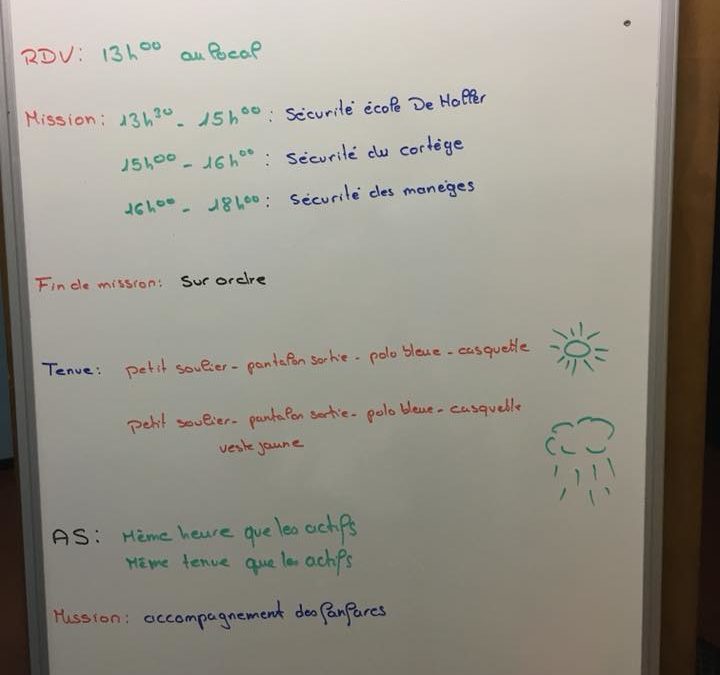 RDV: 13h00 au local
Mission: 13h30 - 15h00: Sécurité école De Haller
15h00 - 16h00: Sécurité du cortège
16h00 - 18h00: Sécurité des manèges
Fin de mission: Sur ordre
Tenue: petit soulier - pantalon sortie - polo bleue - casquette
petit soulier - pantalon sortie - polo bleue - casquette
veste jaune
AS: Même heure que les actifs
Même tenue que les actifs
Mission: accompagnement des fanfares